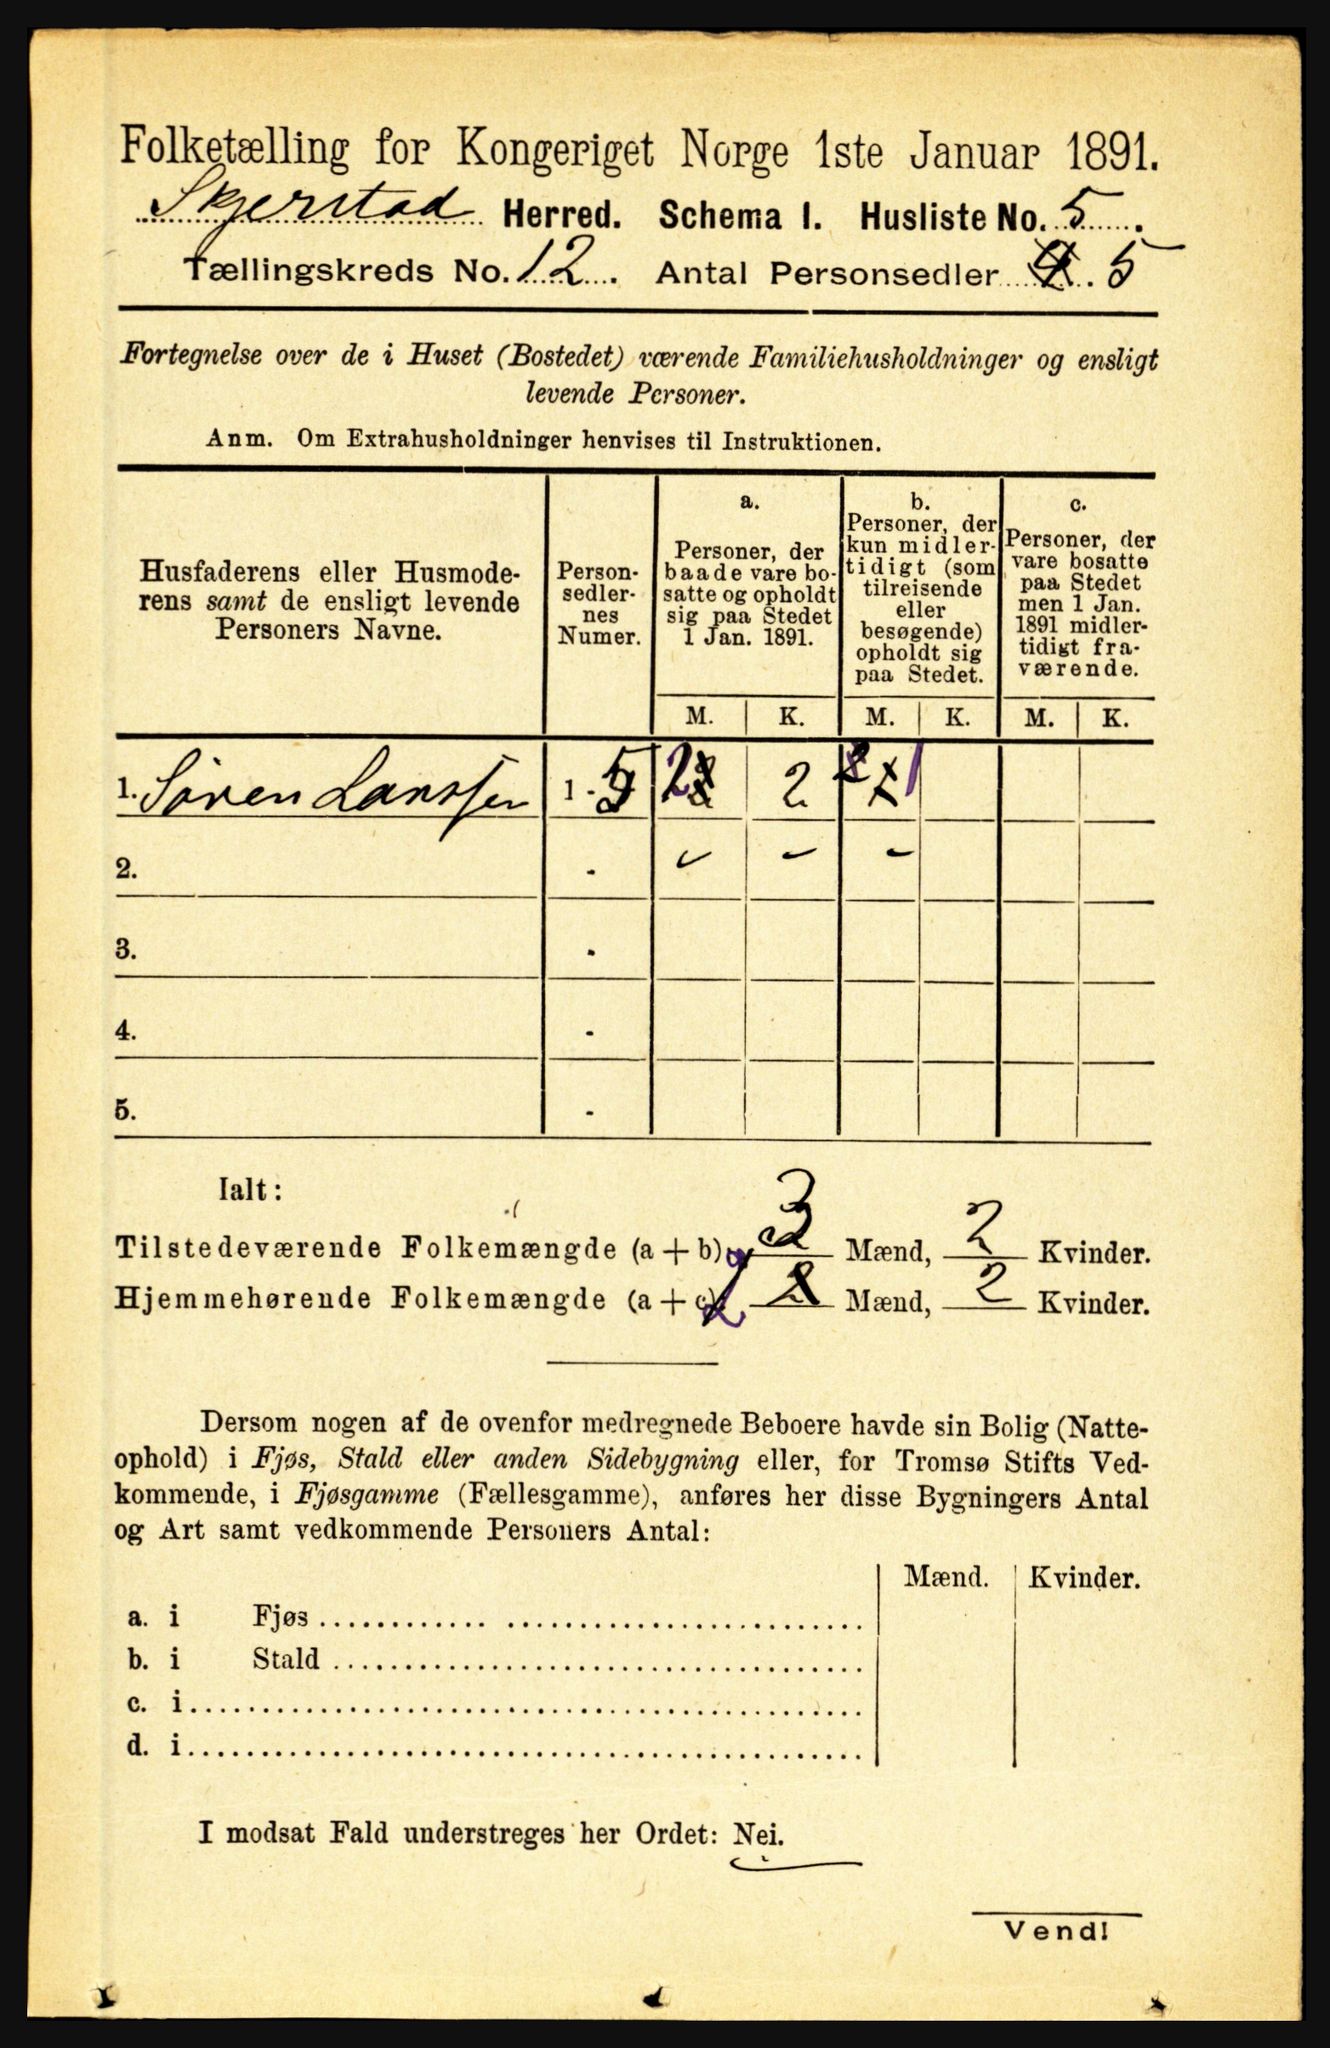 Folketælling for Kongeriget Norge 1ste Januar 1891.
Skjerstad Herred. Schema I. Husliste No. 5.
Tællingskreds No. 12. Antal Personsedler 5
Fortegnelse over de i Huset (Bostedet) værende Familiehusholdninger og ensligt
levende Personer.
Anm. Om Extrahusholdninger henvises til Instruktionen.
Husfaderens eller Husmode-
rens samt de ensligt levende
Personers Navne.
Person-
sedler-
nes
Numer.
a.
Personer, der
baade vare bo-
satte og opholdt
sig paa Stedet
1 Jan. 1891.
b.
Personer, der
kun midler-
tidigt (som
tilreisende
eller
besøgende)
opholdt sig
paa Stedet.
c.
Personer, der
vare bosatte
paa Stedet
men 1 Jan.
1891 midler-
tidigt fra-
værende.
M. K. M. K. M. K.
1. Sören Larssen 1 - 5 2 2 1
2. -
3. -
4. -
5. -
Ialt:
Tilstedeværende Folkemængde (a + b) 3 Mænd, 2 Kvinder.
Hjemmehørende Folkemængde (a + c) 2 Mænd, 2 Kvinder.
Dersom nogen af de ovenfor medregnede Beboere havde sin Bolig (Natte-
ophold) i Fjøs, Stald eller anden Sidebygning eller, for Tromsø Stifts Ved-
kommende, i Fjøsgamme (Fællesgamme), anføres her disse Bygningers Antal
og Art samt vedkommende Personers Antal:
Mænd. Kvinder.
a. i Fjøs
b. i Stald
c. i
d. i
I modsat Fald understreges her Ordet: Nei.
Vend!